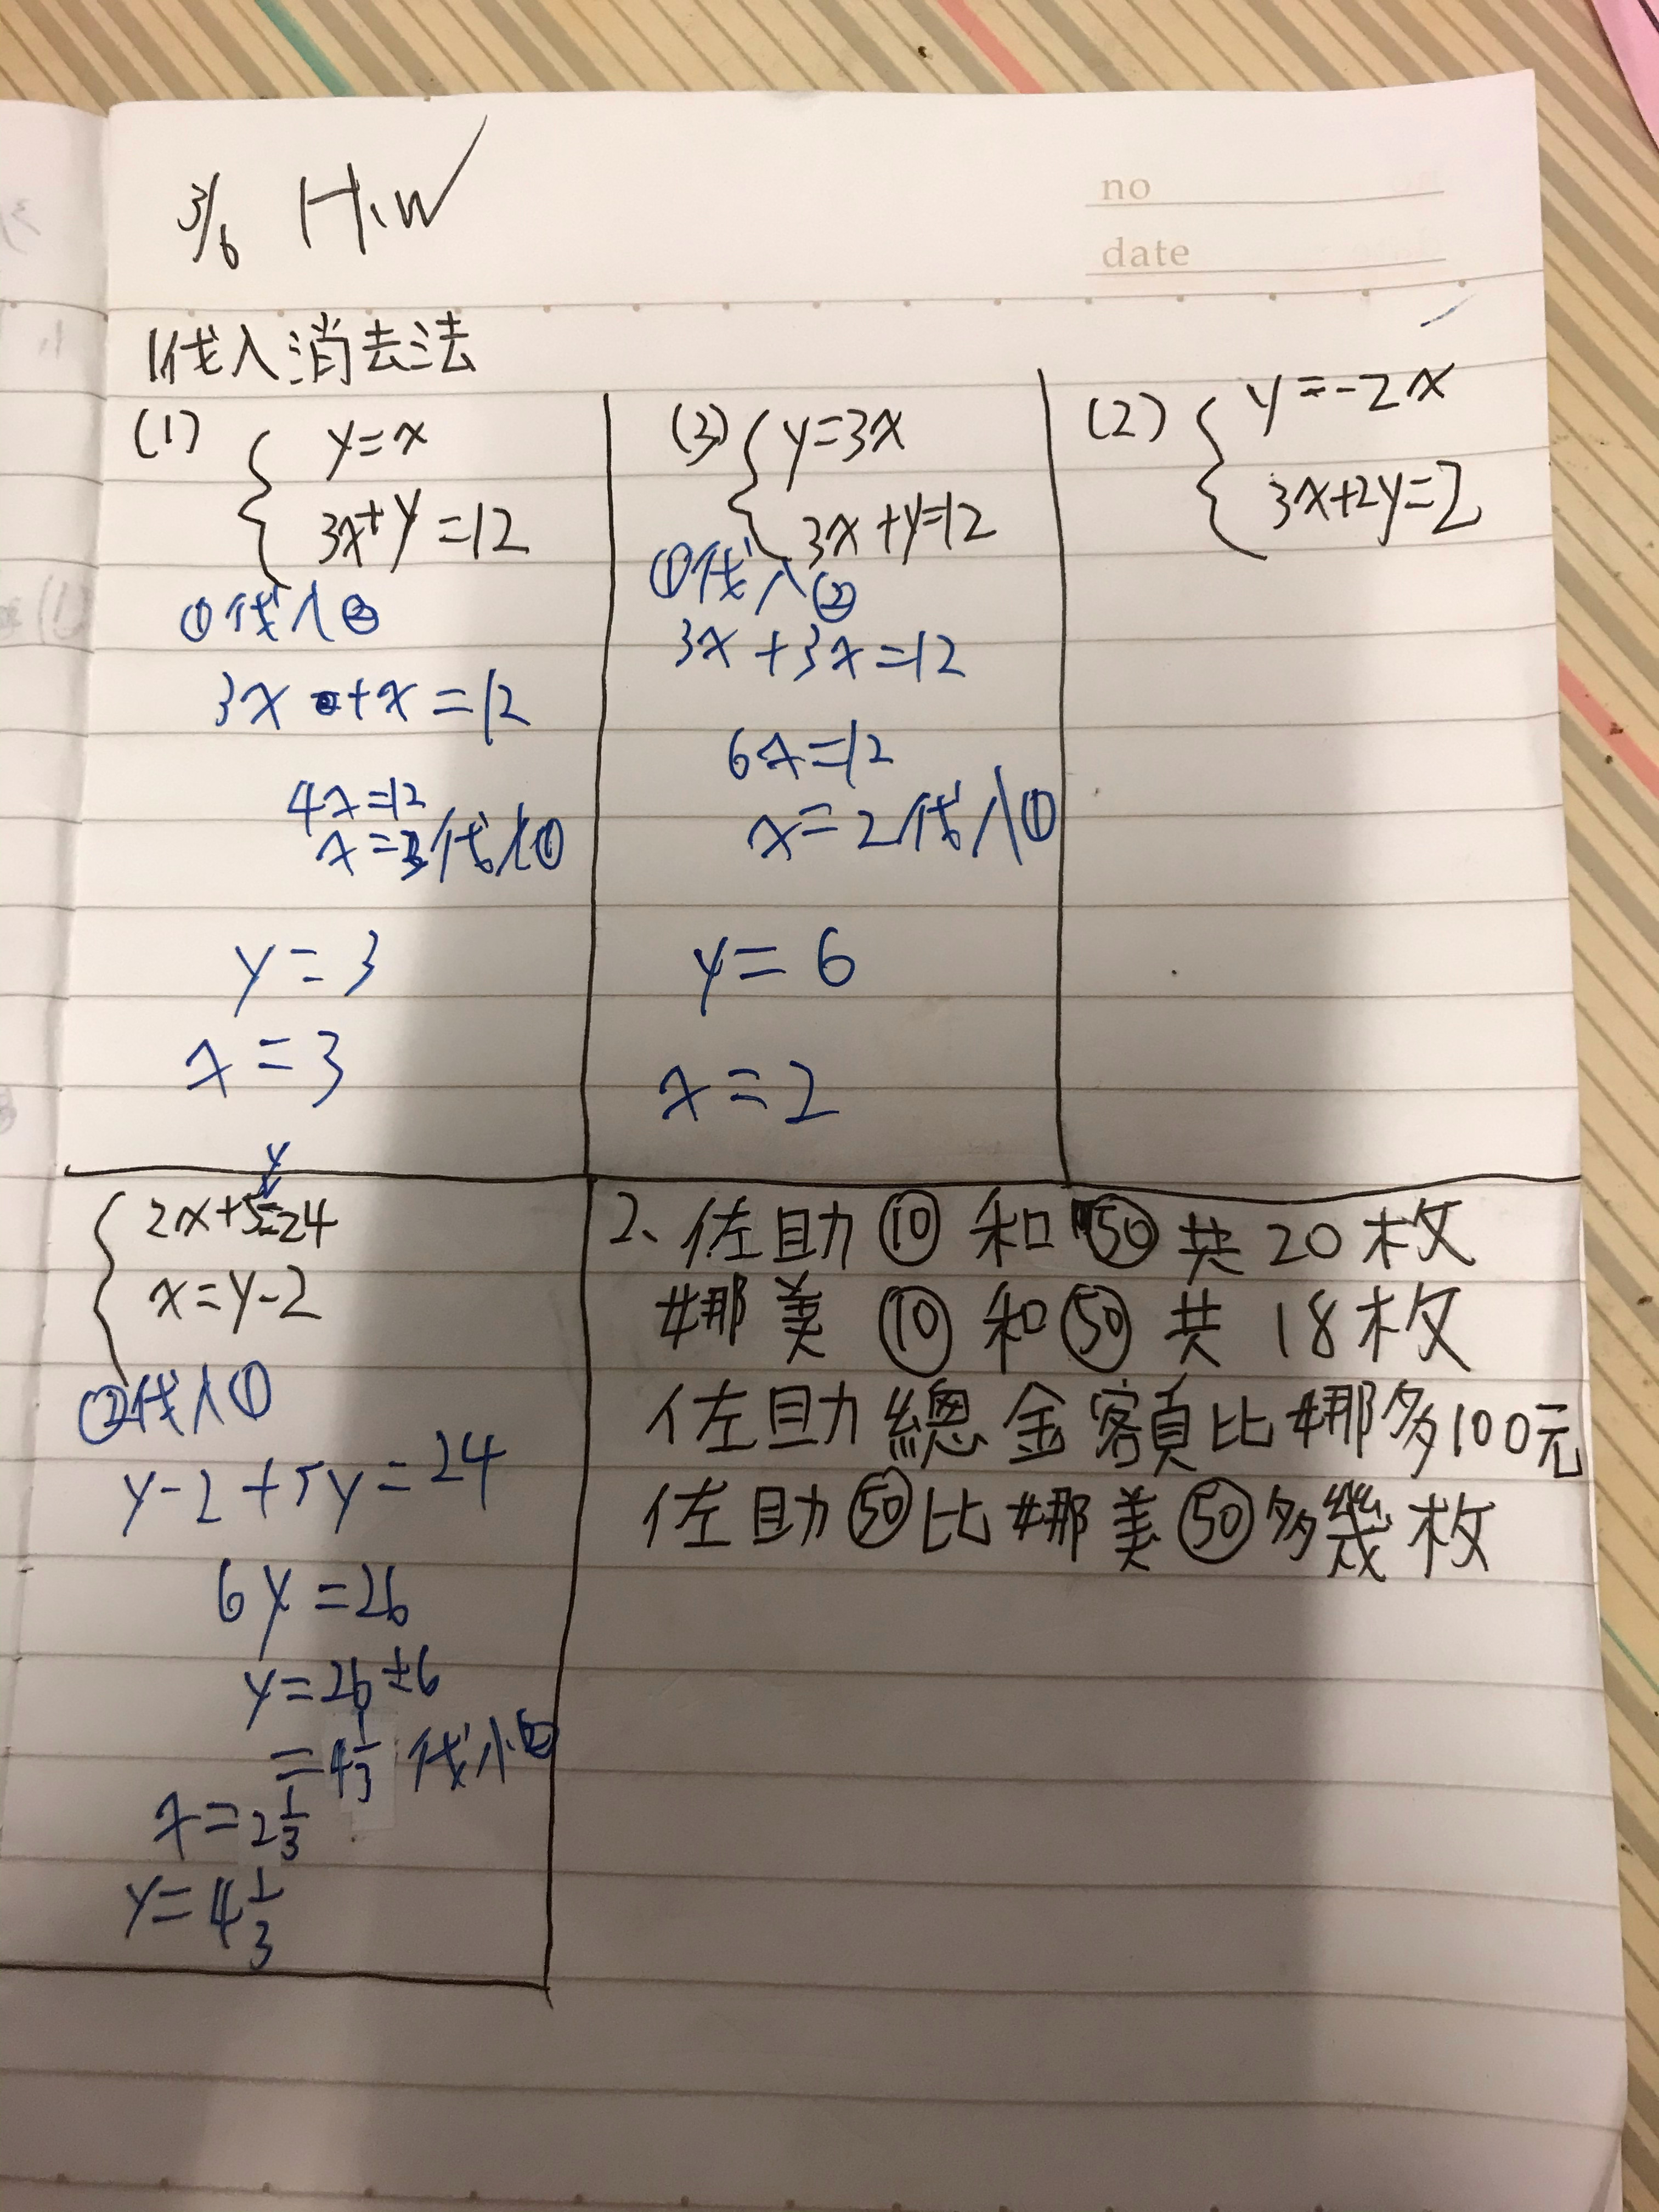 3/6 H.W
no
date
1代入消去法
(1) { y=x
3x+y=12
①代入②
3x+x=12
4x=12
x=3代入①
y=3
x=3
(3) { y=3x
3x+y=12
①代入②
3x+3x=12
6x=12
x=2代入①
y=6
x=2
(2) { y=-2x
3x+2y=2
{ 2x+5y=24
x=y-2
②代入①
y-2+5y=24
6y=26
y=26÷6
=4 1/3 代入②
x=2 1/3
y=4 1/3
2、佐助⑩和㊿共20枚
娜美⑩和㊿共18枚
佐助總金額比娜多100元
佐助㊿比娜美㊿多幾枚